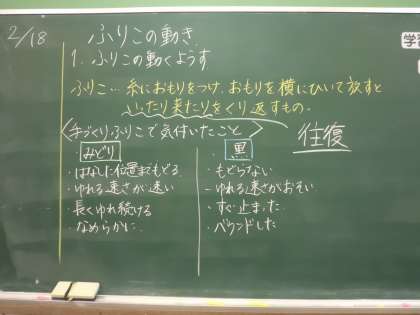 2/18
ふりこの動き
学習
1. ふりこの動くようす
ふりこ…糸におもりをつけ、おもりを横にひいて放すと
いったり来たりをくり返すもの。
往復
<手づくりふりこで気付いたこと>
みどり
・はなした位置までもどる
・ゆれる速さが速い
・長くゆれ続ける
・なめらかに
黒
・もどらない
・ゆれる速さがおそい
・すぐ止まった
・バウンドした